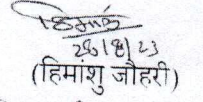 28/8/23
(हिमांशु जौहरी)